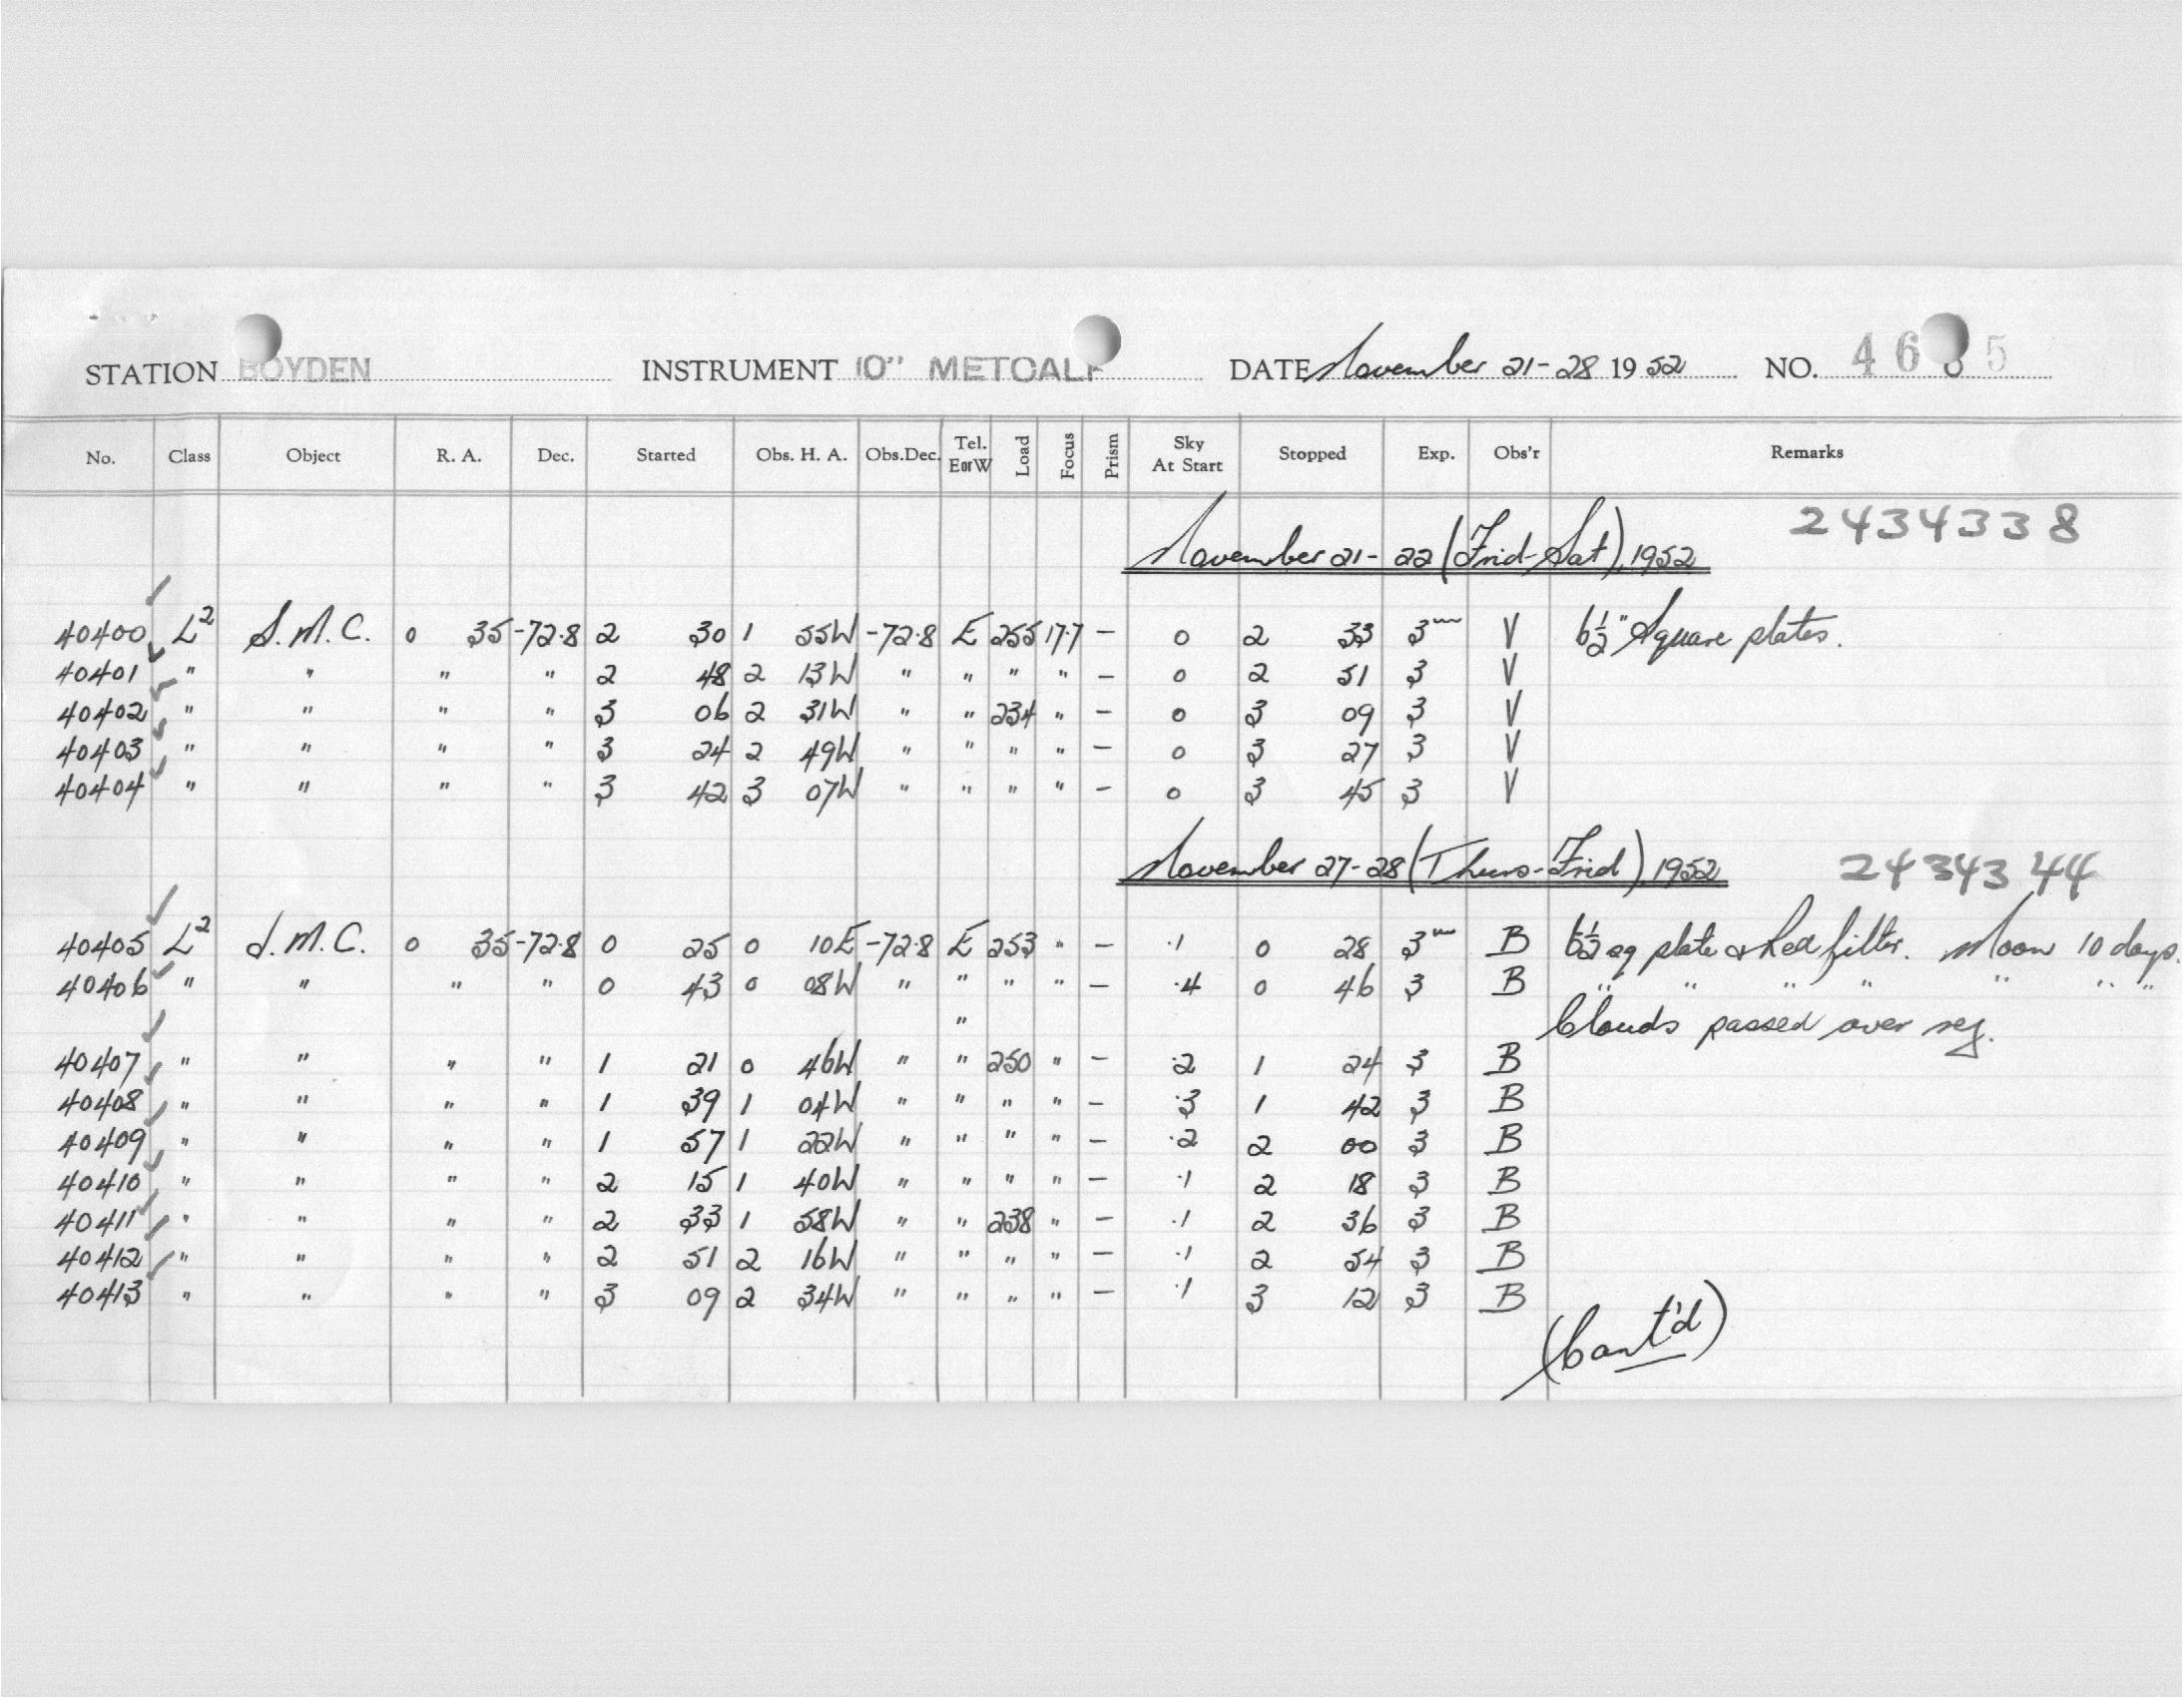 STATION BOYDEN INSTRUMENT 10" METCALF DATE November 21-28 1952 NO. 46 5
No. Class Object R. A. Dec. Started Obs. H. A. Obs.Dec. Tel. E or W Load Focus Prism Sky At Start Stopped Exp. Obs'r Remarks
2434338
November 21-22 (Frid-Sat), 1952
40400 L² S.M.C. 0 35 -72.8 2 30 1 55W -72.8 E 255 17.7 — 0 2 33 3ᵐ V 6½" Square plates.
40401 " " " " 2 48 2 13W " " " " — 0 2 51 3 V
40402 " " " " 3 06 2 31W " " 234 " — 0 3 09 3 V
40403 " " " " 3 24 2 49W " " " " — 0 3 27 3 V
40404 " " " " 3 42 3 07W " " " " — 0 3 45 3 V
November 27-28 (Thurs-Frid), 1952 2434344
40405 L² S.M.C. 0 35 -72.8 0 25 0 10E -72.8 E 253 " — .1 0 28 3ᵐ B 6½ sq plate & Red filter. Moon 10 days.
40406 " " " " 0 43 0 08W " " " " — .4 0 46 3 B " " " " " " "
" Clouds passed over reg.
40407 " " " " 1 21 0 46W " " 250 " — .2 1 24 3 B
40408 " " " " 1 39 1 04W " " " " — .3 1 42 3 B
40409 " " " " 1 57 1 22W " " " " — .2 2 00 3 B
40410 " " " " 2 15 1 40W " " " " — .1 2 18 3 B
40411 " " " " 2 33 1 58W " " 238 " — .1 2 36 3 B
40412 " " " " 2 51 2 16W " " " " — .1 2 54 3 B
40413 " " " " 3 09 2 34W " " " " — .1 3 12 3 B
(Cont'd)